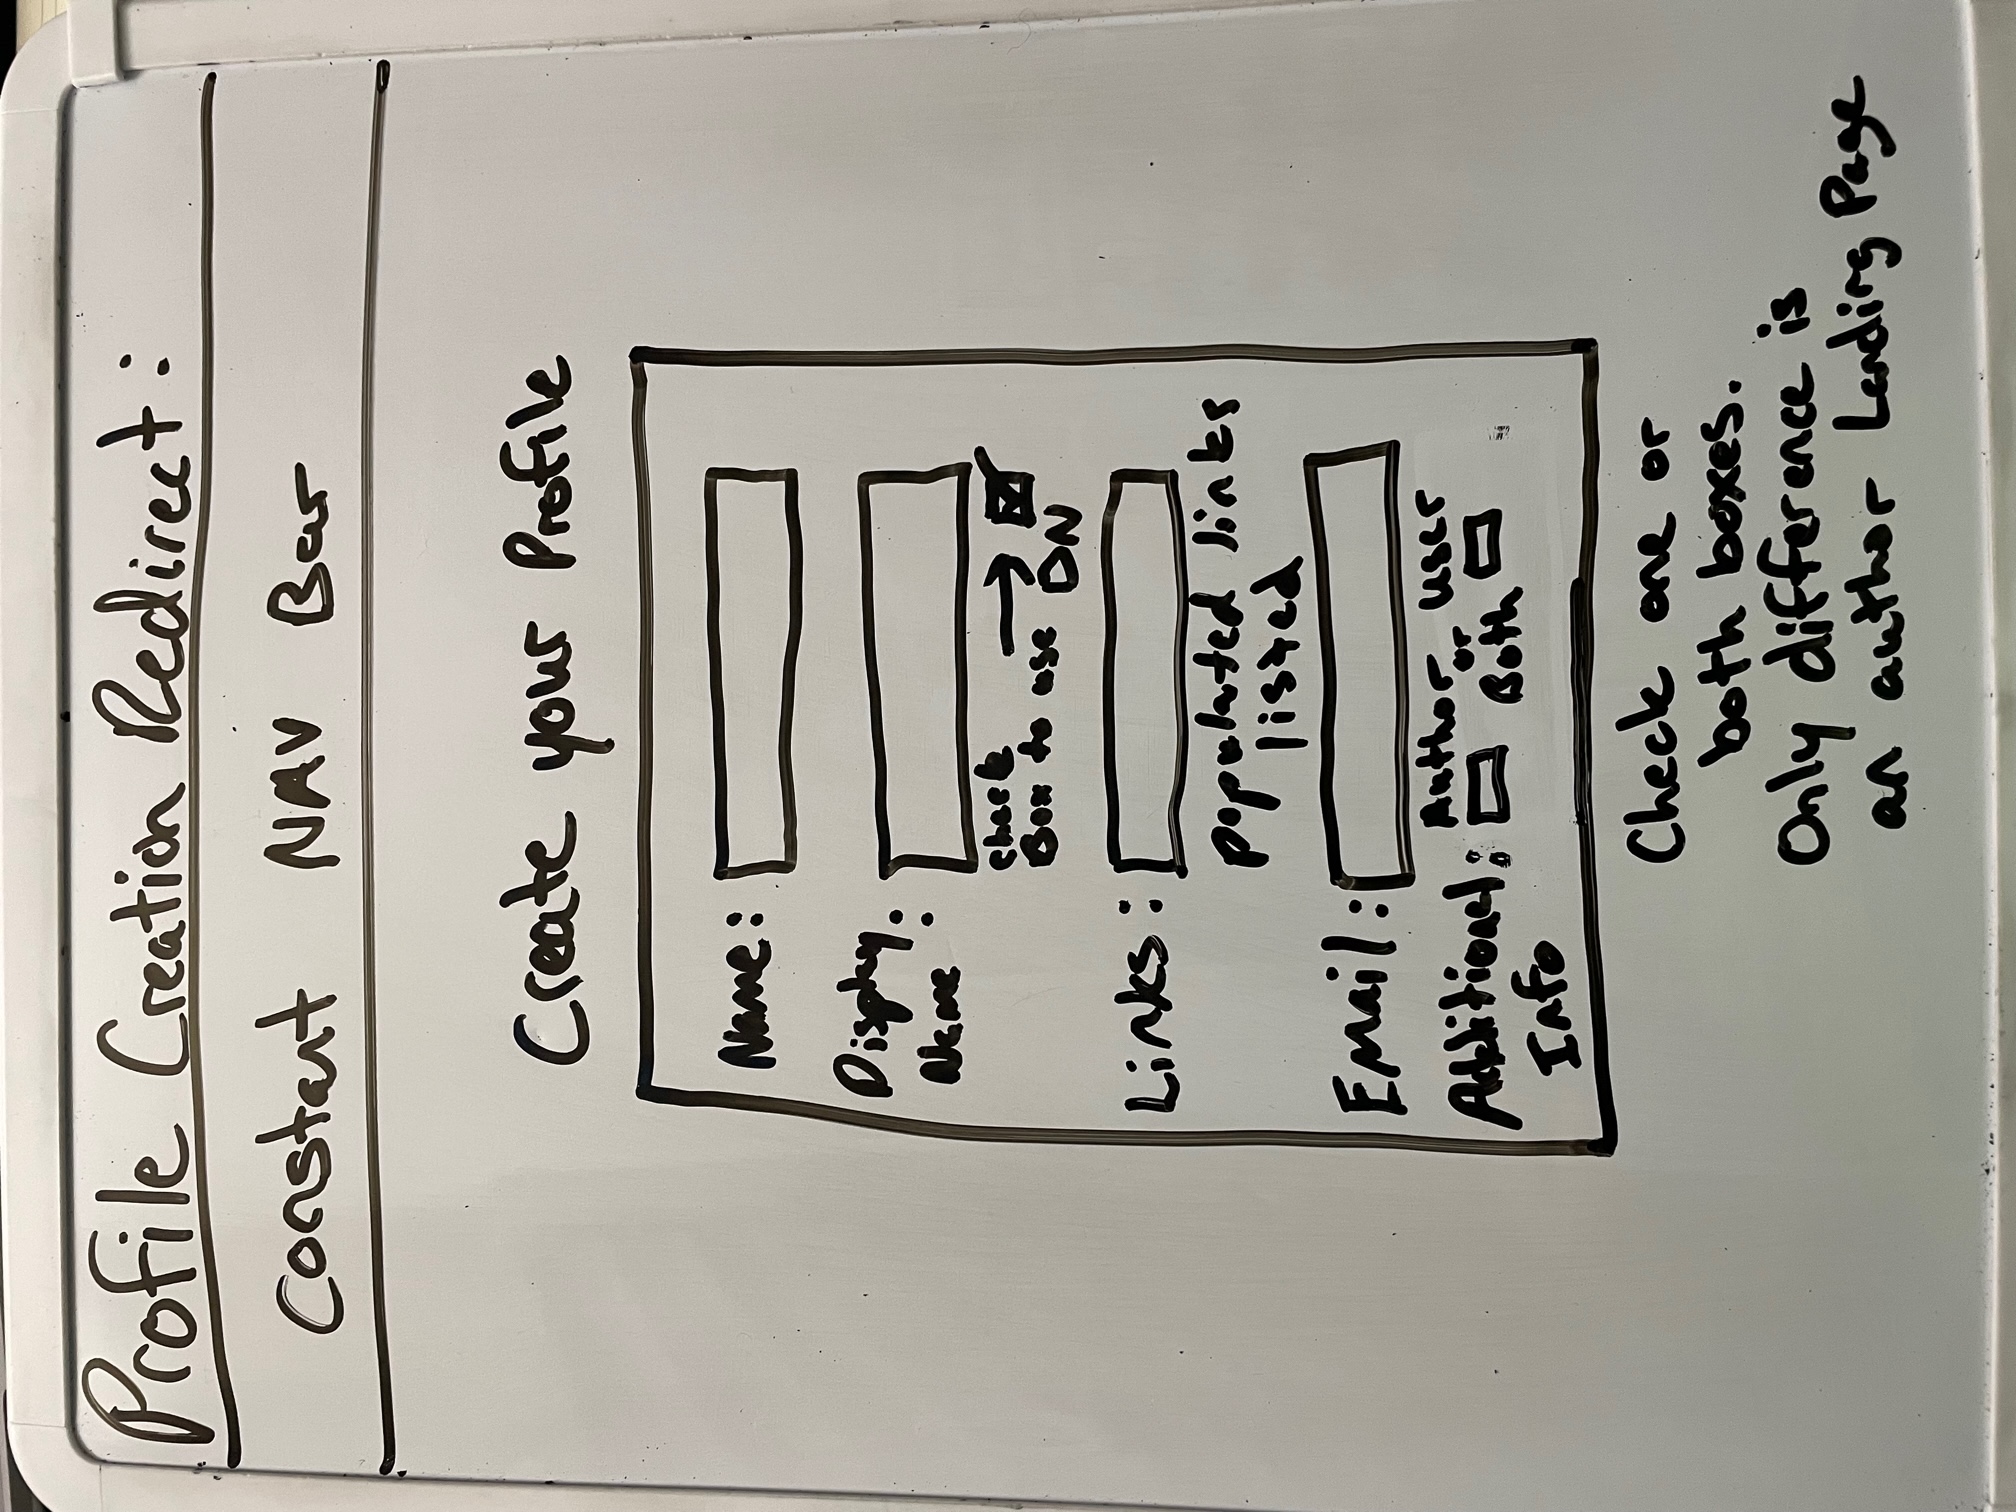 Profile Creation Redirect:
Constant NAV Bar
Create your Profile
Name:
Display
Name :
check
Box to use → DN
Links:
populated links
listed
Email:
Additional:
Info
Author or User
Both
Check one or
both boxes.
Only difference is
an author Landing Page